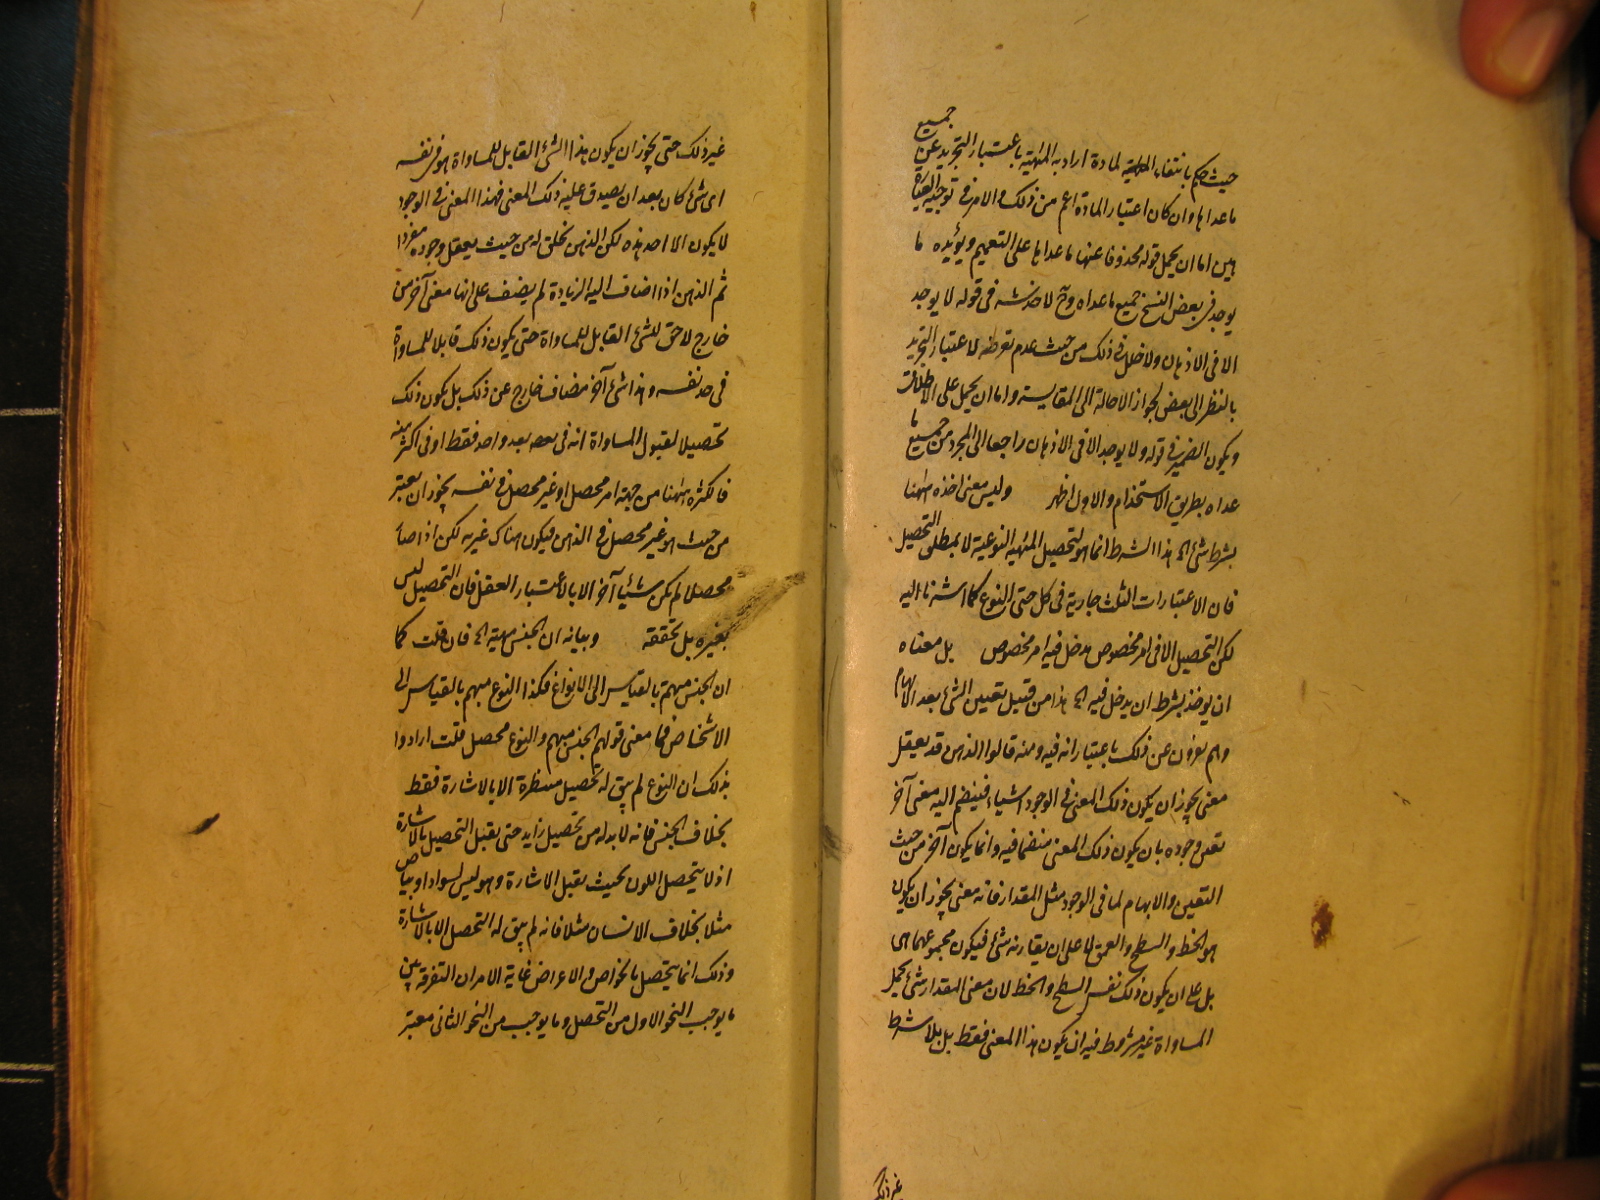 حيث حكم بانتفاء المطلقة لمادة اراد به المهية باعتبار التجريد عن جميع
ماعداها وان كان اعتبار المادة اعم من ذلك والامر في توجيه العبارة
هين اما ان يحمل قوله محذوفا عنها ماعداها على التعميم ويؤيده ما
يوجد في بعض النسخ جميع ماعداه وح لا خدشة في قوله لا يوجد
الا في الاذهان ولا خلل في ذلك من حيث عدم تعرضه لاعتبار التجريد
بالنظر الى بعض لجواز الاحالة الى المقايسة واما ان يحمل على الاطلاق
ويكون الضمير في قوله ولا يوجد الا في الاذهان راجعا الى المجرد من جميع ما
عداه بطريق الاستخدام والاول اظهر وليس معنى اخذه ههنا
بشرط شئ الخ هذا الشرط انما هو لتحصيل المهية النوعية لا بمطلق التحصيل
فان الاعتبارات الثلث جارية في كل حتى النوع كما اشرنا اليه
لكن التحصيل الا في امر مخصوص مدخل فيه امر مخصوص بل معناه
ان يوخذ بشرط ان يدخل فيه الخ هذا من قبيل تعيين الشئ بعد الابهام
وهم يعرفون عن ذلك باعتبار انه فيه ومنه قالوا الذهن قد يعقل
معنى يجوز ان يكون ذلك المعنى في الوجود اشياء فينضم اليه معنى آخر
تعين وجوده بان يكون ذلك المعنى منضما فيه وانما يكون آخر من حيث
التعين والابهام لما في الوجود مثل المقدار فانه معنى يجوز ان يكون
هو الخط والسطح والعمق لا على ان يقارنه شئ فيكون مجموعهما هي
بل على ان يكون ذلك نفس السطح والخط لان معنى المقدار شئ يحمل
المساواة غير مشروط فيه ان يكون هذا المعنى فقط بل بلا شرط
غير ذلك
غير ذلك حتى يجوز ان يكون هذا الشئ القابل للمساواة هو في نفسه
اى شئ كان بعد ان يصدق عليه ذلك المعنى فهذا المعنى في الوجود
لا يكون الا احد هذه لكن الذهن يخلق له من حيث يعقل وجوده مفردا
ثم الذهن اذا اضاف اليه الزيادة لم يضف على انها معنى آخر من
خارج لاحق للشئ القابل للمساواة حتى يكون ذلك قابلا للمساواة
في حد نفسه وهذا شئ آخر مضاف خارج عن ذلك بل يكون ذلك
تحصيلا لقبول المساواة انه في بعد واحد فقط او في اكثر منه
فالكثرة ههنا من جهة امر محصل او غير محصل في نفسه يجوز ان يعتبر
من حيث هو غير محصل في الذهن فيكون هناك غيرية لكن اذا صار
محصلا لم يكن شيئا آخر الا بالاعتبار العقل فان التحصيل ليس
بغيره بل تحققه وبيانه ان الجنس مهية الخ فان قلت كما
ان الجنس مبهم بالقياس الى الانواع فكذا النوع مبهم بالقياس الى
الاشخاص فما معنى قولهم الجنس مبهم والنوع محصل قلت ارادوا
بذلك ان النوع لم يبق له تحصيل منتظرة الا بالاشارة فقط
بخلاف الجنس فانه لابد له من تحصيل زايد حتى يقبل التحصيل بالاشارة
اذ لا يتحصل اللون بحيث يقبل الاشارة وهو ليس لسواد او بياض
مثلا بخلاف الانسان مثلا فانه لم يبق له التحصل الا بالاشارة
وذلك انما يتحصل بالخواص والاعراض غاية الامر ان التفرقة بين
ما يوجب النحو الاول من التحصل وما يوجب من النحو الثاني معتبر